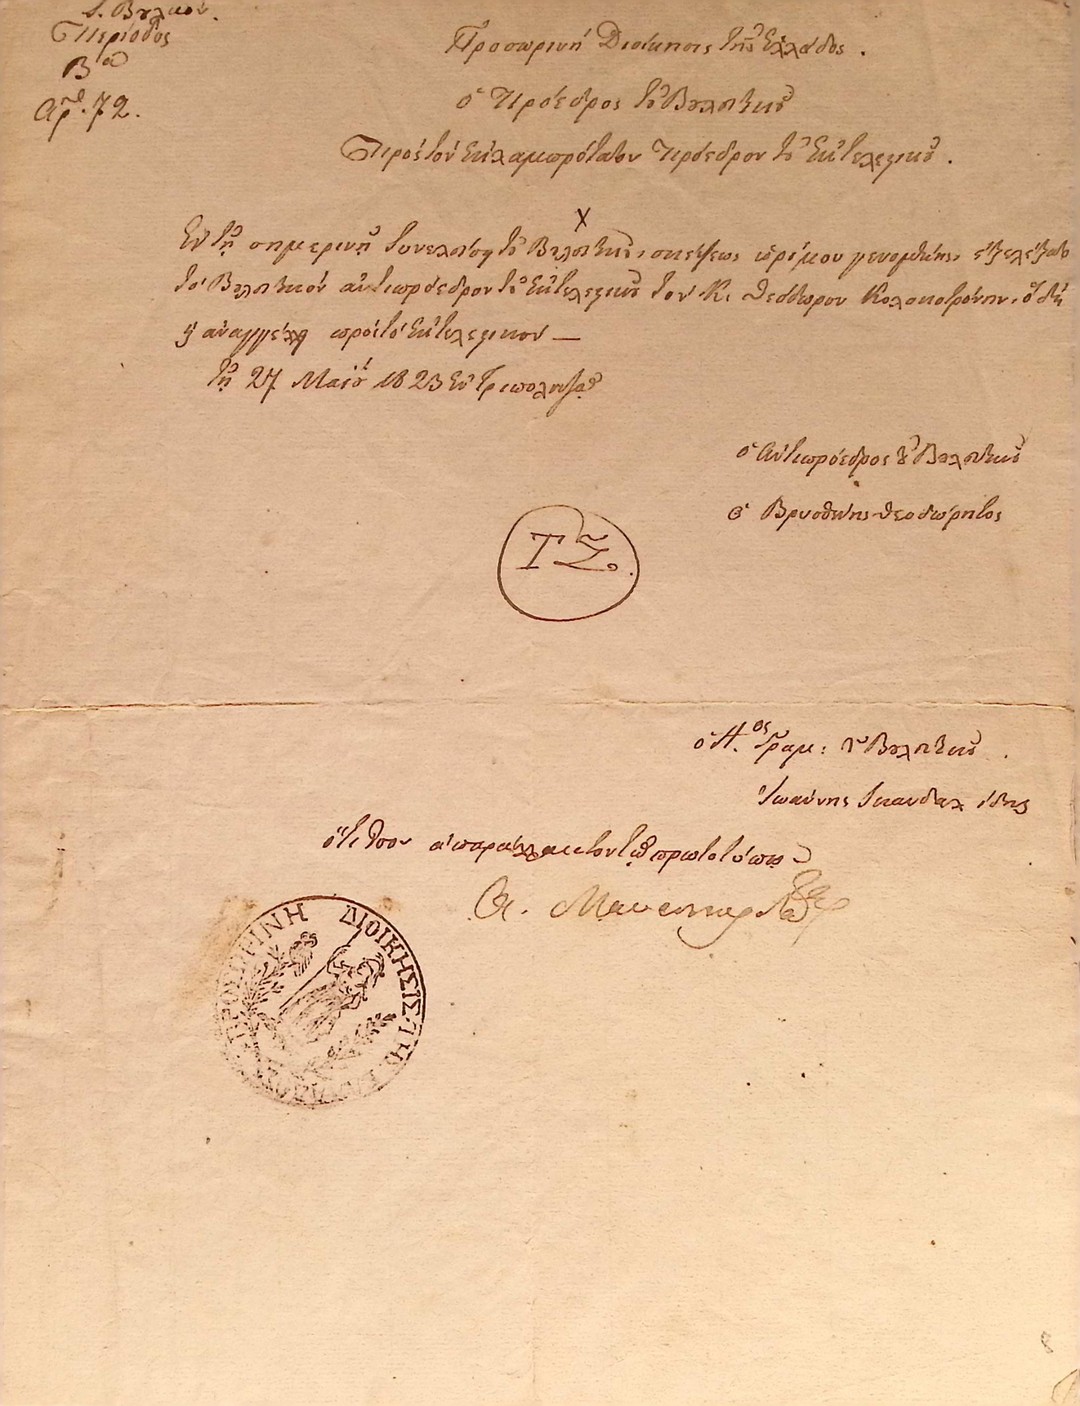 Περίοδος
Βα
Αρ. 72.
Προσωρινή Διοίκησις τῆς Ἑλλάδος.
ὁ Πρόεδρος τοῦ Βουλευτικοῦ
Πρός τόν Ἐκλαμπρότατον Πρόεδρον τοῦ Ἐκτελεστικοῦ.
Χ
Ἐν τῇ σημερινῇ συνελεύσει τοῦ Βουλευτικοῦ, σκέψεως ὡρίμου γενομένης, ἐξελέξατο
τό Βουλευτικόν ἀντιπρόεδρον τοῦ Ἐκτελεστικοῦ τόν Κ. Θεόδωρον Κολοκοτρώνην, ὅθεν
ἀναγγέλλει πρός τό Ἐκτελεστικόν —
τῇ 27 Μαΐου 1823 ἐν Τριπολιτζᾷ
ὁ Ἀντιπρόεδρος τοῦ Βουλευτικοῦ
ὁ Βρυσθένης Θεοδώρητος
Τ Σ.
ὁ Α.ος Γραμ: τοῦ Βουλευτικοῦ.
Ἰωάννης Σκανδαλίδης
ὅτι ἴσον ἀπαράλλακτον τῷ πρωτοτύπῳ
ΠΡΟΣΩΡΙΝΗ ΔΙΟΙΚΗΣΙΣ ΤΗΣ ΕΛΛΑΔΟΣ